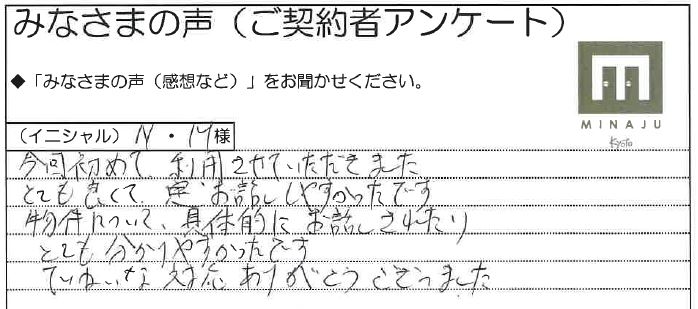 みなさまの声（ご契約者アンケート）
◆「みなさまの声（感想など）」をお聞かせください。
MINAJU
Kyoto
（イニシャル）N・M様
今回初めて、利用させていただきました
とても良くて、お話ししやすかったです
物件について、具体的にお話しされたり
とても分かりやすかったです
ていねいな対応ありがとうございました